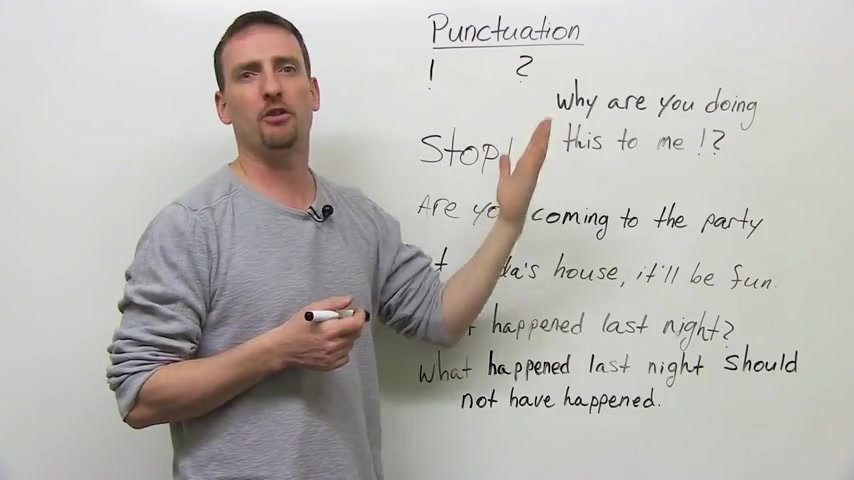 Punctuation
! ?
Why are you doing
this to me !?
Stop!
Are you coming to the party
house, it'll be fun.
happened last night?
What happened last night should
not have happened.